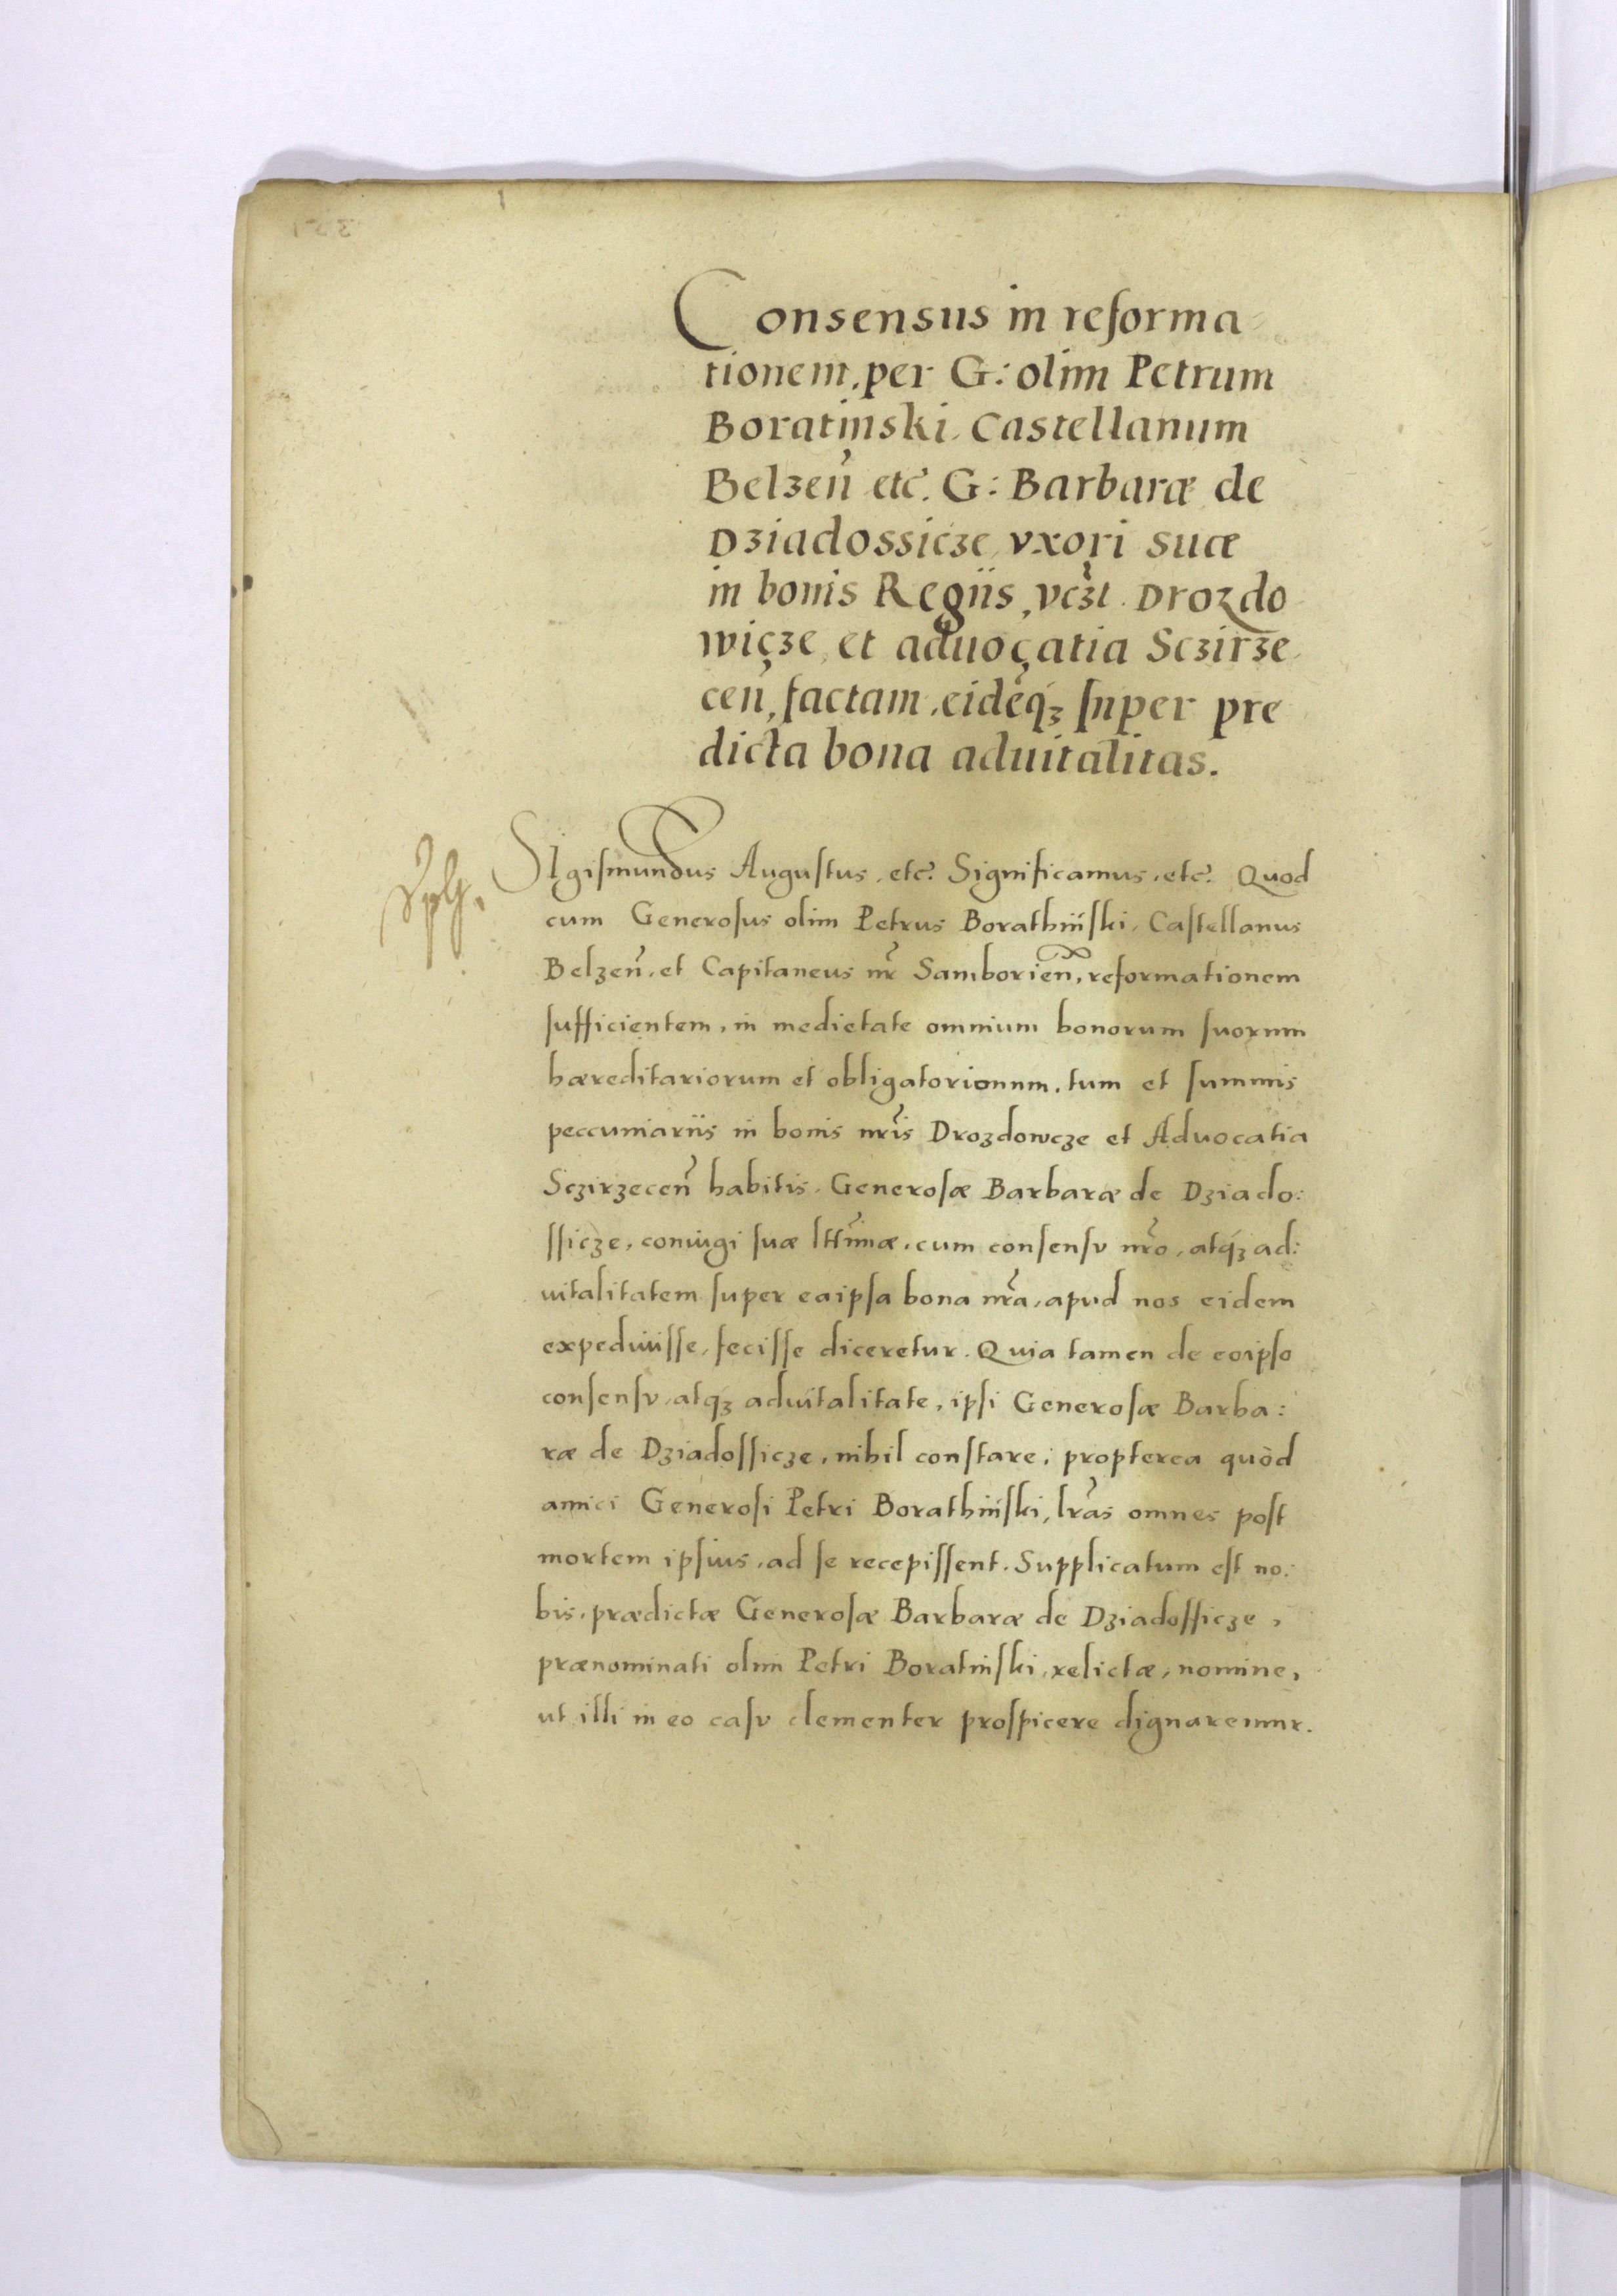 Consensus in reforma
tionem, per G: olim Petrum
Boratinski, Castellanum
Belzen̄ etc̄. G: Barbaræ de
Dziadossicze, vxori suæ
in bonis Regiis, vczt. Drozdo
wicze, et aduocatia Sczirze
cen̄, factam, eidēq̃ʒ super pre
dicta bona aduitalitas.
SIgiſmundus Auguſtus, etc̄. Significamus, etc̄. Quod
cum Generoſus olim Petrus Borathinſki, Caſtellanus
Belzen̄, et Capitaneus nr̄ Samborien̄, reformationem
ſufficientem, in medietate omnium bonorum ſuorum
hæreditariorum et obligatoriorum, tum et ſummis
peccuniariis in bonis nr̄is Drozdowcze et Advocatia
Sczirzecen̄ habitis, Generoſæ Barbaræ de Dziado:
ſſicze, coniugi ſuæ lttīmæ, cum conſenſv nr̄o, atq́ʒ ad:
uitalitatem ſuper eaipſa bona nr̄a, apud nos eidem
expediuiſſe, feciſſe diceretur. Quia tamen de eoipſo
conſenſv, atqʒ aduitalitate, ipſi Generoſæ Barba:
ræ de Dziadoſſicze, nihil conſtare, propterea quòd
amici Generoſi Petri Borathinſki, lr̄as omnes poſt
mortem ipſius, ad ſe recepiſſent. Supplicatum eſt no:
bis, prædictæ Generoſæ Barbaræ de Dziadoſſicze,
prænominati olim Petri Boratinſki, relictæ, nomine,
ut illi in eo caſv clementer proſpicere dignaremur.